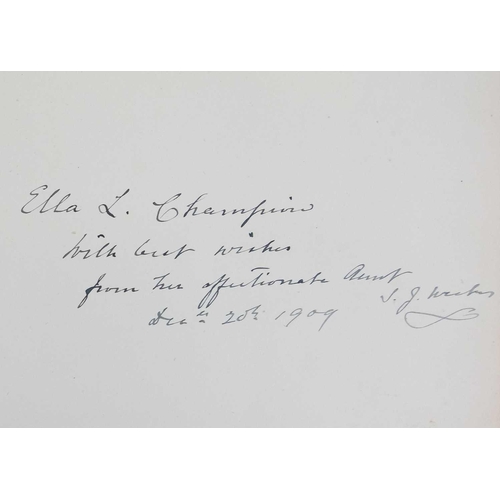 Ella L. Champion
With best wishes
from her affectionate Aunt
S. J.
Decr 20th 1909